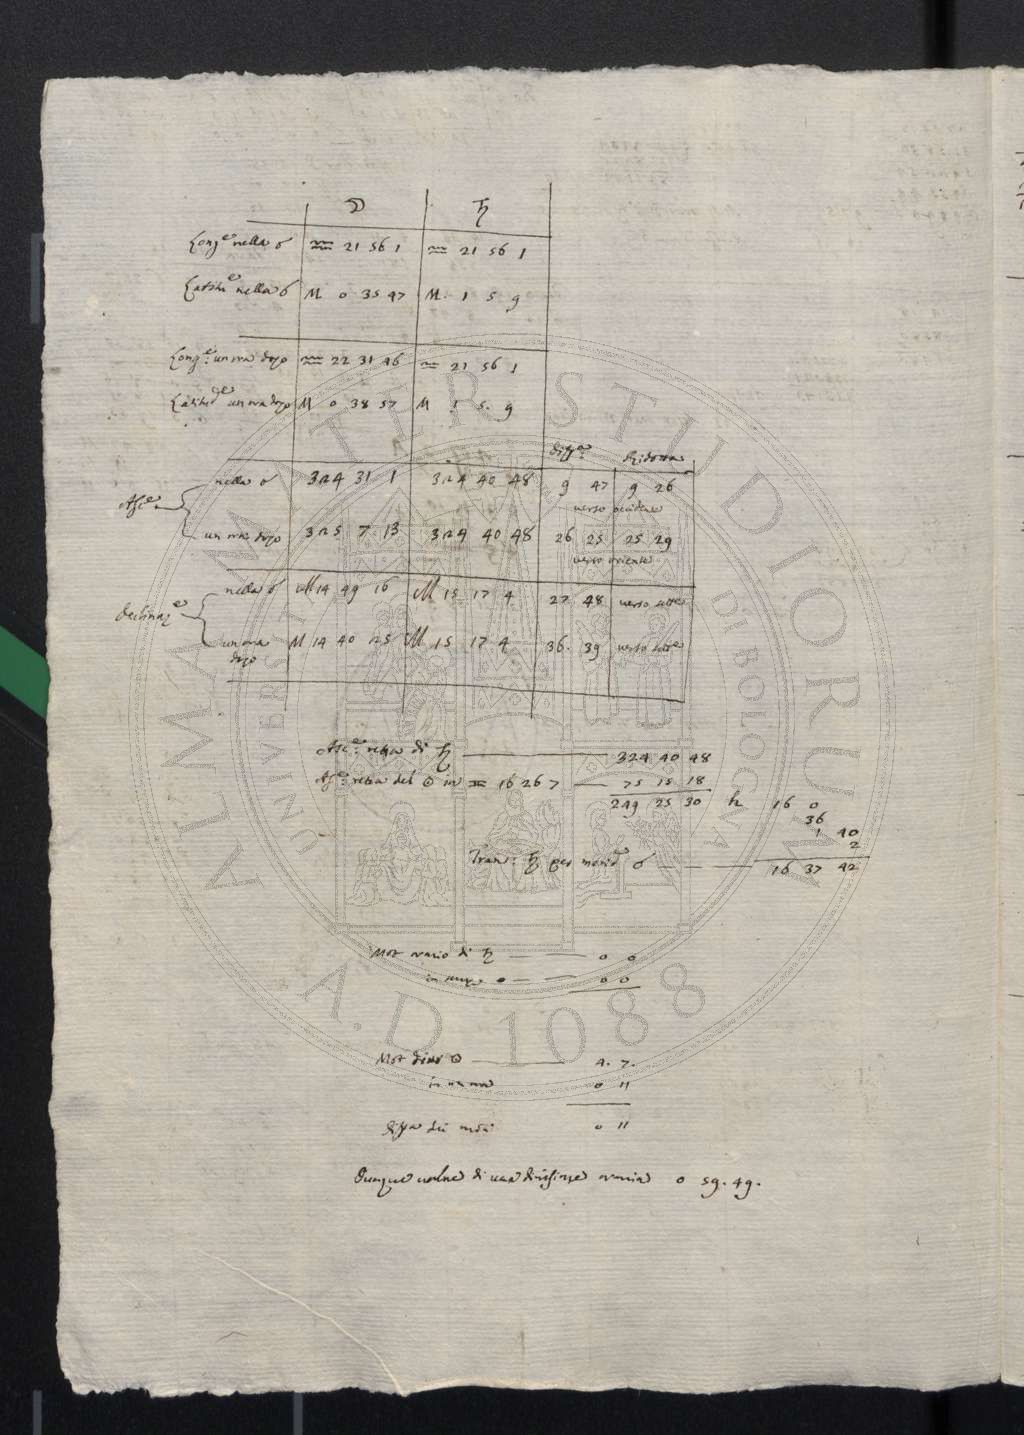 ☽ ♄
Longe nella ☌ ♒ 21 56 1 ♒ 21 56 1
Latitue nella ☌ M 0 35 47 M. 1 5 9
Longe: un ora dopo ♒ 22 31 46 ♒ 21 56 1
Latitue un ora dopo M 0 38 57 M 1 5. 9
Diffza Ridotta
nella ☌ 324 31 1 324 40 48 9 47 9 26
verso occidente
Asce
un ora dopo 325 7 13 324 40 48 26 25 25 29
verso oriente
nella ☌ M 14 49 16 M 15 17 4 27 48 verso sette
Declinaze
un ora M 14 40 25 M 15 17 4 36. 39 verso sette
dopo
Asce: retta di ♄ 324 40 48
Asce retta del ☉ in ♊ 16 26 7 75 15 18
249 25 30 h 16 0
36
1 40
2
Tran: ♄ per merid ☌ 16 37 42
Mot orario di ♄ 0 0
0 0
Mot dior ☉ 4. 7.
in un ora 0 11
diffza dei moti 0 11
Dunque valore di una divisione oraria 0 59. 49.
ALMA MATER STUDIORUM
UNIVERSITÀ DI BOLOGNA
A.D. 1088